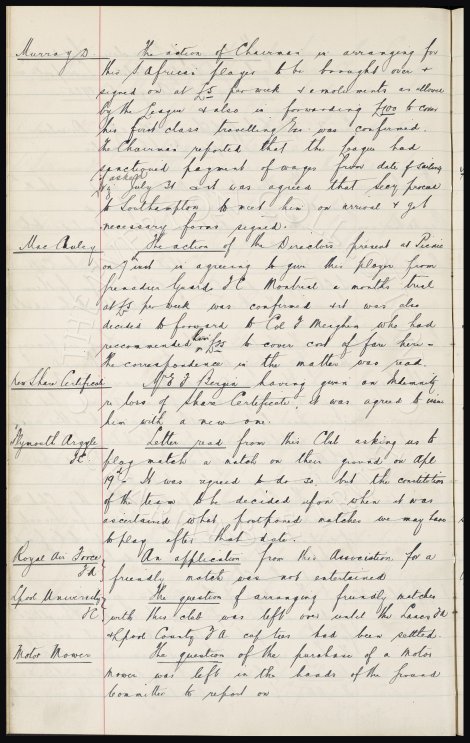 Murray D. The action of Chairman in arranging for
this S African player to be brought over &
signed on at £5 per week & emoluments as allowed
by the League & also in forwarding £100 to cover
his first class travelling Exs was confirmed.
The Chairman reported that the League had
sanctioned payment of wages from date of sailing
viz July 31 & it was agreed that Secy proceed
to Southampton to meet him on arrival & get
necessary forms signed.
Mac Auley The action of the Directors present at Picnic
on 7th inst in agreeing to give this player from
Grenadier Guard F.C. Montreal a months trial
at £5 per week was confirmed & it was also
decided to forward to Col F Meighen who had
recommended him £35 to cover cost of fare here -
the correspondence in the matter was read.
New Share Certificate Mr E J Bergin having given an Indemnity
re loss of Share Certificate, it was agreed to issue
him with a new one.
Plymouth Argyle Letter read from this Club asking us to
F.C. play match a match on their ground on Apl
19th - It was agreed to do so but the constitution
of the team to be decided upon when it was
ascertained what postponed matches we may have
to play after that date.
Royal Air Force An application from this Association for a
F A friendly match was not entertained
Lpool University The question of arranging friendly matches
F C with this club was left over until the Lancs F A
& Lpool County F A cup ties had been settled.
Motor Mower The question of the purchase of a Motor
mower was left in the hands of the Ground
Committee to report on